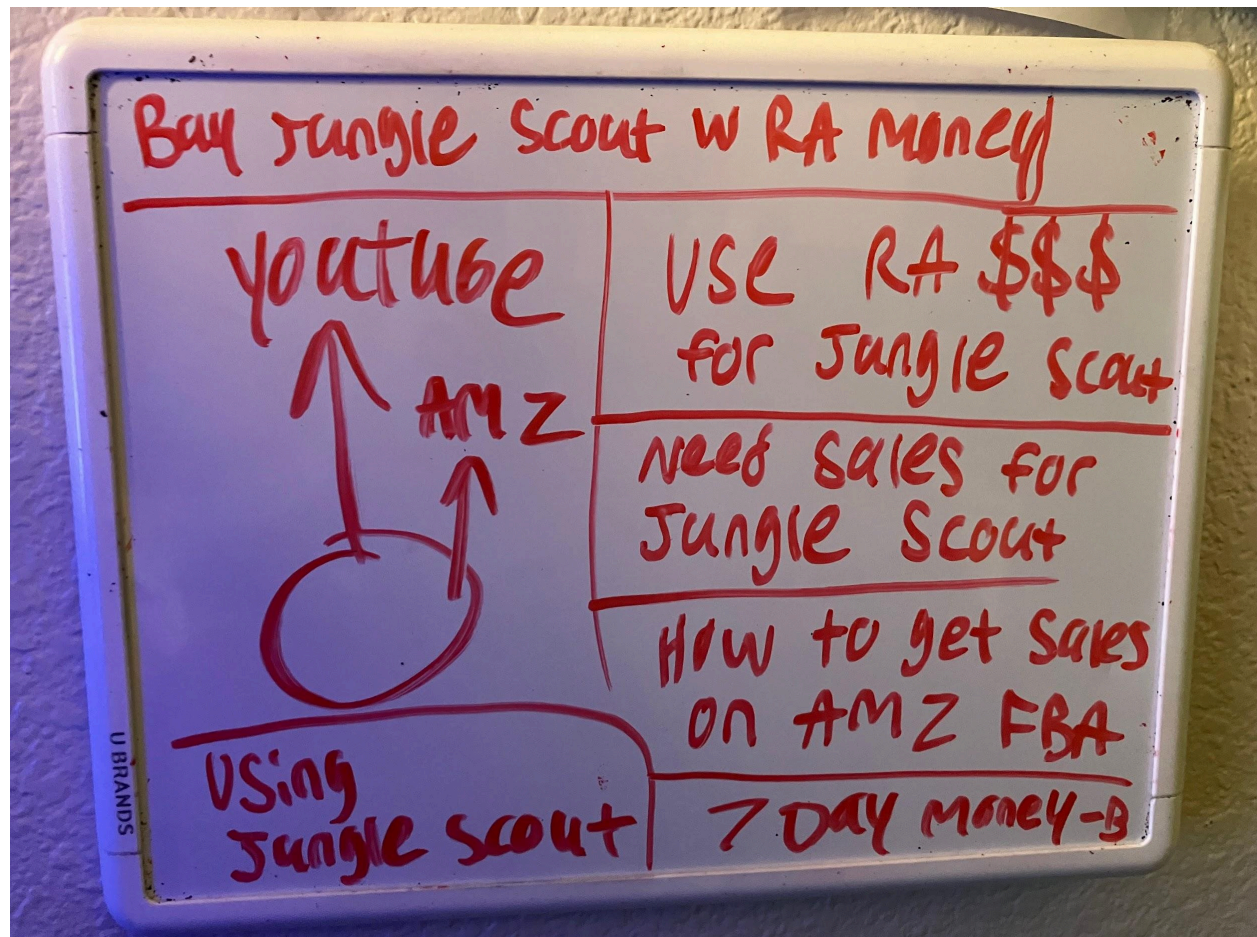 Buy Jungle Scout W RA Money
Youtube
AMZ
Using
Jungle Scout
Use RA $$$
for Jungle Scout
Need Sales for
Jungle Scout
How to get Sales
on AMZ FBA
7 Day Money-B
U BRANDS